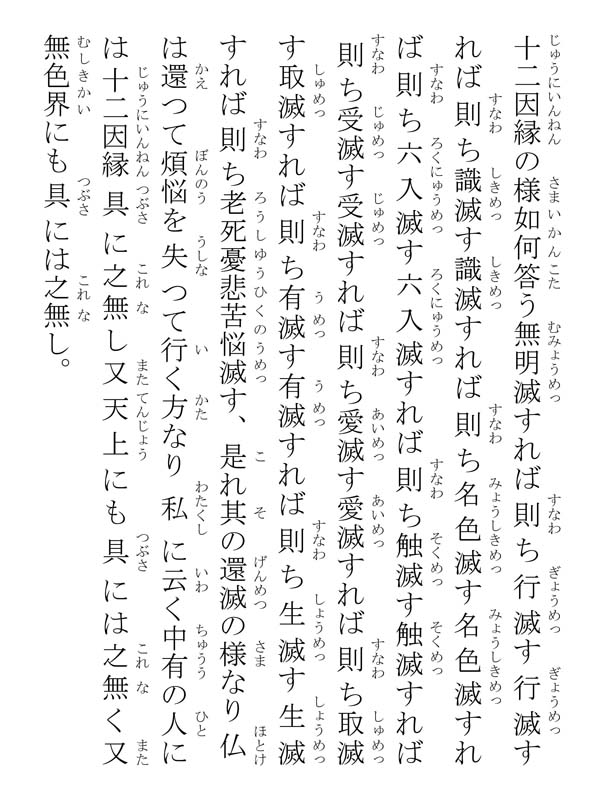 十二因縁の様如何答う無明滅すれば則ち行滅す行滅す
れば則ち識滅す識滅すれば則ち名色滅す名色滅すれ
ば則ち六入滅す六入滅すれば則ち触滅す触滅すれば
則ち受滅す受滅すれば則ち愛滅す愛滅すれば則ち取滅
す取滅すれば則ち有滅す有滅すれば則ち生滅す生滅
すれば則ち老死憂悲苦悩滅す、是れ其の還滅の様なり仏
は還つて煩悩を失つて行く方なり私に云く中有の人に
は十二因縁具に之無し又天上にも具には之無く又
無色界にも具には之無し。